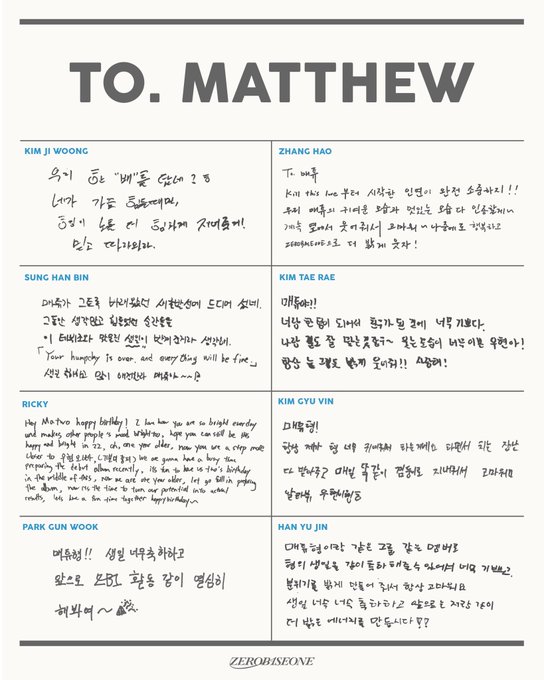 TO. MATTHEW
KIM JI WOONG
우리 한 "배"를 탔네?
네가 가끔 힘들때면,
형이 노를 더 힘차게 저어줄게!
믿고 따라와라.
ZHANG HAO
To. 매튜
Kill this love 부터 시작한 인연이 완전 소중하지!!
우리 매튜의 귀여운 모습과 멋있는 모습 다 인증할게~
계속 옆에서 웃어줘서 고마워~ 나중에도 행복하고
ZEROBASEONE으로 더 밝게 웃자!
SUNG HAN BIN
매튜가 그토록 바래왔던 시작선에 드디어 섰네.
그동안 생각많고 힘들었던 순간들을
이 데뷔조와 맞춘 생일이 반겨준거라 생각해.
「Your humpchy is over. and everything will be fine.」
생일 축하하고 많이 애정한다 매튜야~~!
KIM TAE RAE
매튜야!!
너랑 한 팀이 되어서 친구가 된 것에 너무 기쁘다.
나랑 결도 잘 맞는 친구~ 웃는 모습이 너무 이쁜 우현아!
항상 늘 그래도 밝게 웃어줘!! 사랑해!
RICKY
Hey Matvo happy birthday! I how you are so bright everyday
and makes other people's mood brighter, hope you can still be this
happy and bright in 22, oh, one year older, now you are a step more
closer to 우현오빠, (기분이 좋지?) We are gonna have a busy time
preparing the debut album recently, its fun to have us two's birthday
in the middle of this, now we are one year older, let go full in preping
the album, now its the time to turn our potential into actual
results, lets have a fun time together happy birthday~
KIM GYU VIN
매튜형!
항상 제가 형 너무 귀여워서 따르는거에요 다면서 치는 장난
다 받아주고 매일 똑같이 겸둥이로 지내줘서 고마워요
알라뷰 우현이형
PARK GUN WOOK
매튜형!! 생일 너무 축하하고
앞으로 ZB1 활동 같이 열심히
해봐여~
HAN YU JIN
매튜형이랑 같은 그룹, 같은 멤버로
형의 생일을 같이 축하해줄 수 있어서 너무 기쁘고,
분위기를 밝게 만들어 줘서 항상 고마워요
생일 너무 너무 축하하고 앞으로는 저랑 같이
더 밝은 에너지를 만듭시다!?
ZEROBASEONE